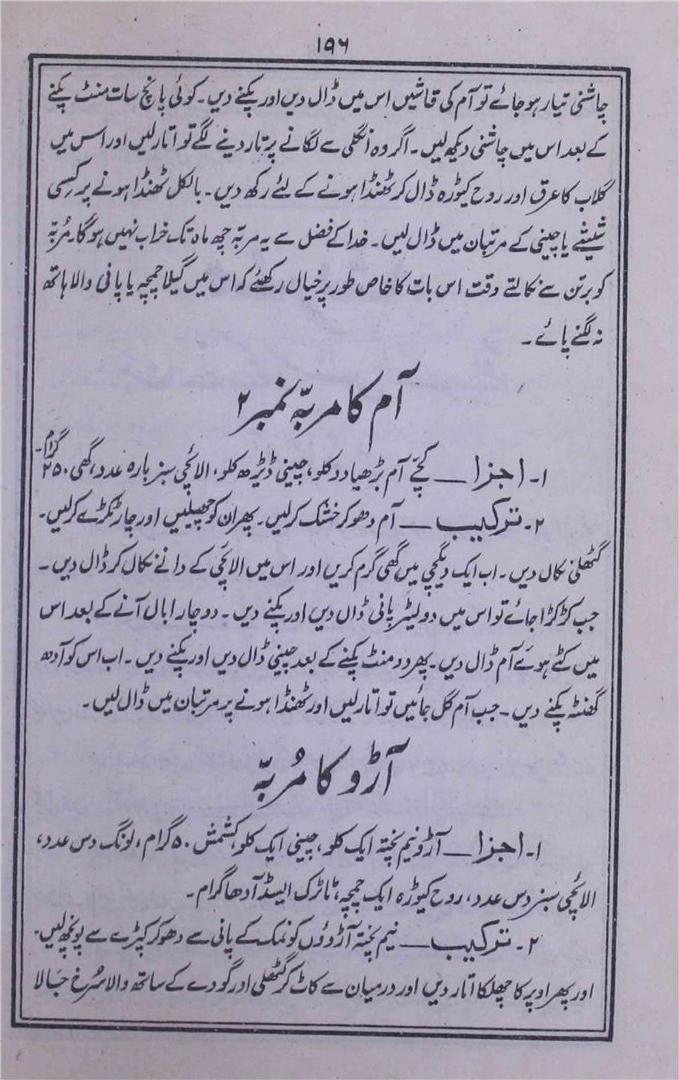 ۱۹۶
چاشنی تیار ہو جائے تو آم کی قاشیں اس میں ڈال دیں اور پکنے دیں۔ کوئی پانچ سات منٹ پکنے
کے بعد اس میں چاشنی دیکھ لیں۔ اگر وہ انگلی سے لگانے پر تار دینے لگے تو اتار لیں اور اس میں
گلاب کا عرق اور روح کیوڑہ ڈال کر ٹھنڈا ہونے کے لئے رکھ دیں۔ بالکل ٹھنڈا ہونے پر کسی
شیشے یا چینی کے مرتبان میں ڈال لیں۔ خدا کے فضل سے یہ مربّہ چھ ماہ تک خراب نہیں ہوگا۔ مُربّہ
کو برتن سے نکالتے وقت اس بات کا خاص طور پر خیال رکھئے کہ اس میں گیلا چمچہ یا پانی والا ہاتھ
نہ لگنے پائے۔
آم کا مربّہ نمبر ۲
۱۔ اجزا ــ کچّے آم بڑھیا دو کلو، چینی ڈیڑھ کلو، الائچی سبز بارہ عدد، گھی ۲۵۰ گرام۔
۲۔ ترکیب ــ آم دھو کر خشک کر لیں۔ پھر ان کو چھیلیں اور چار ٹکڑے کر لیں۔
گٹھلی نکال دیں۔ اب ایک دیگچی میں گھی گرم کریں اور اس میں الائچی کے دانے نکال کر ڈال دیں۔
جب کڑکڑا جائے تو اس میں دو لیٹر پانی ڈال دیں اور پکنے دیں۔ دو چار ابال آنے کے بعد اس
میں کٹے ہوئے آم ڈال دیں۔ پھر دو منٹ پکنے کے بعد چینی ڈال دیں اور پکنے دیں۔ اب اس کو آدھ
گھنٹہ پکنے دیں۔ جب آم گل جائیں تو اتار لیں اور ٹھنڈا ہونے پر مرتبان میں ڈال لیں۔
آڑو کا مُربّہ
۱۔ اجزا ــ آڑو نیم پختہ ایک کلو، چینی ایک کلو، کشمش ۵۰ گرام، لونگ دس عدد،
الائچی سبز دس عدد، روح کیوڑہ ایک چمچہ، ٹارٹرک ایسڈ آدھا گرام۔
۲۔ ترکیب ــ نیم پختہ آڑوؤں کو نمک کے پانی سے دھو کر کپڑے سے پونچھ لیں۔
اور پھر اوپر کا چھلکا اتار دیں اور درمیان سے کاٹ کر گٹھلی اور گودے کے ساتھ والا سُرخ جالا